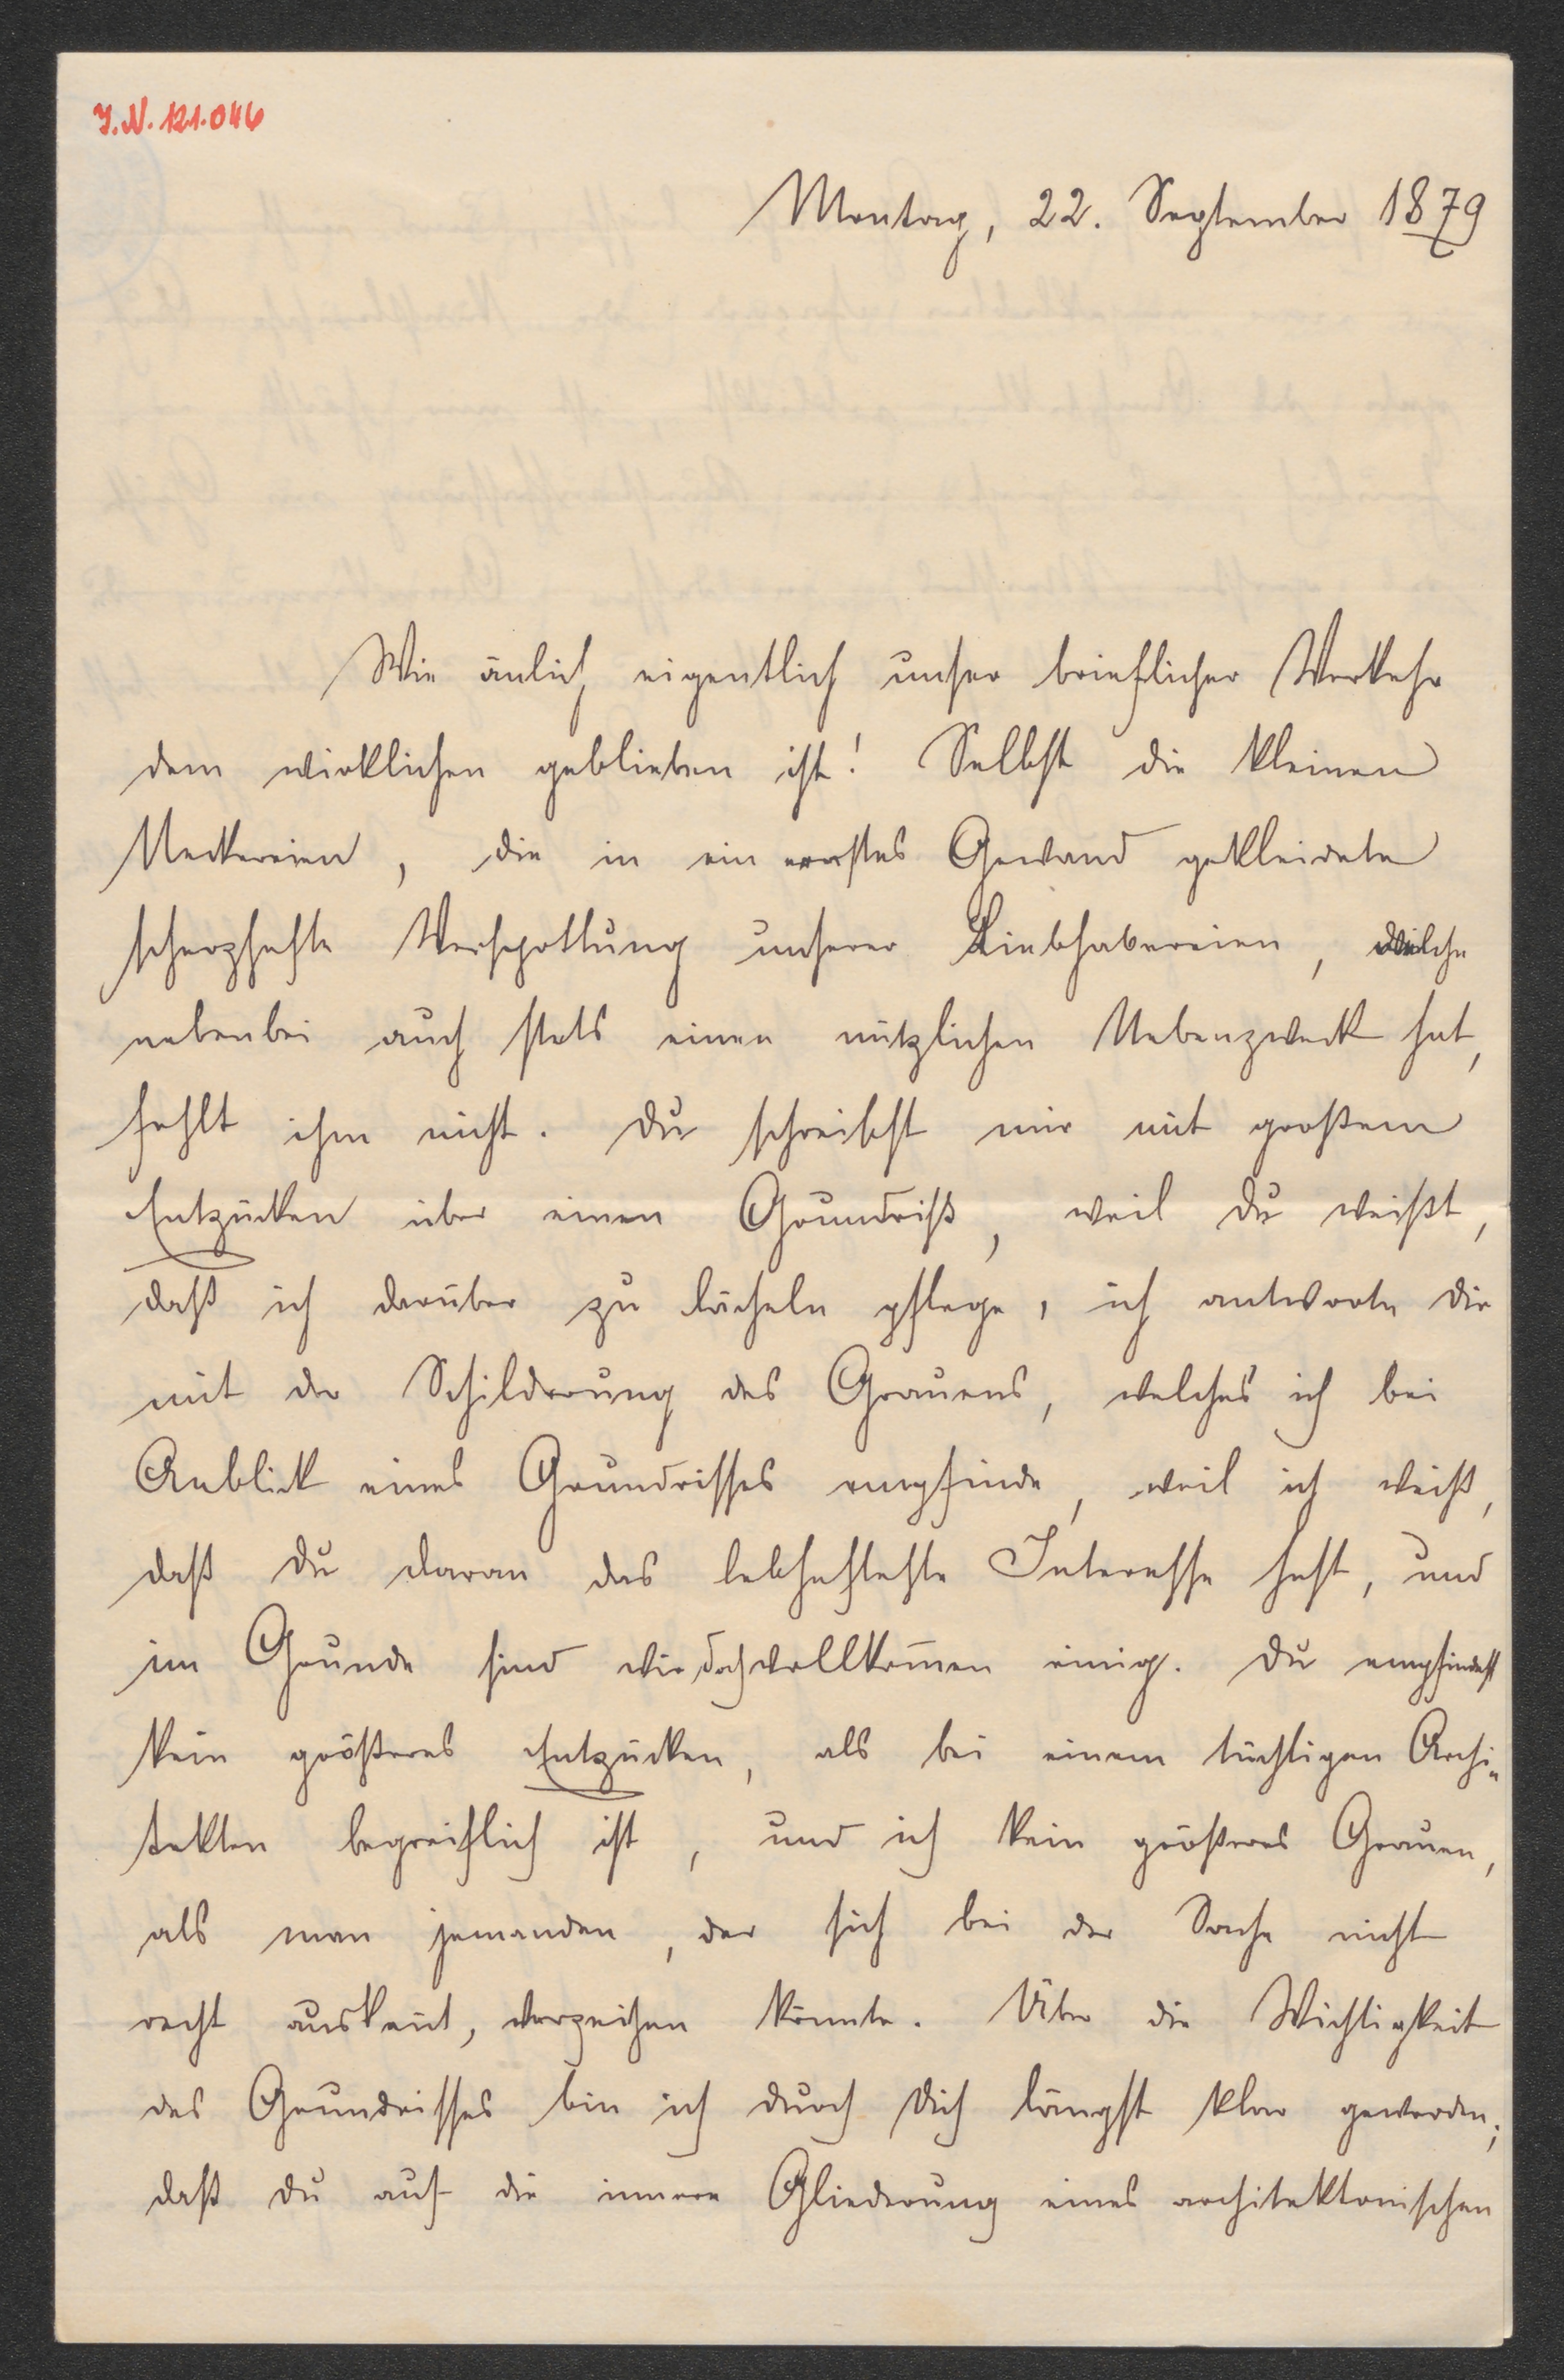 J.N. 121.046
Montag, 22. September 1879
Wie änlich eigentlich unser brieflicher Verkehr
dem wirklichen geblieben ist! Selbst die kleinen
Neckereien, die in ein ernstes Gewand gekleidete
scherzhafte Verspottung unserer Liebhabereien, welche
nebenbei auch stets einen nützlichen Nebenzweck hat,
fehlt ihm nicht. Du schreibst mir mit großem
Entzücken über einen Grundriß, weil Du weißt,
daß ich darüber zu lächeln pflege, ich antworte Dir
mit der Schilderung des Grauens, welches ich bei
Anblick eines Grundrisses empfinde, weil ich weiß,
daß Du daran das lebhafteste Interesse hast, und
im Grunde sind wir doch vollkom̄en einig. Du empfindest
kein größeres Entzücken, als bei einem tüchtigen Archi-
tekten begreiflich ist, und ich kein größeres Grauen,
als man jemanden, der sich bei der Sache nicht
recht auskeñt, verzeihen könnte. Über die Wichtigkeit
des Grundrisses bin ich durch Dich längst klar geworden;
daß Du auf die innere Gliederung eines architektonischen